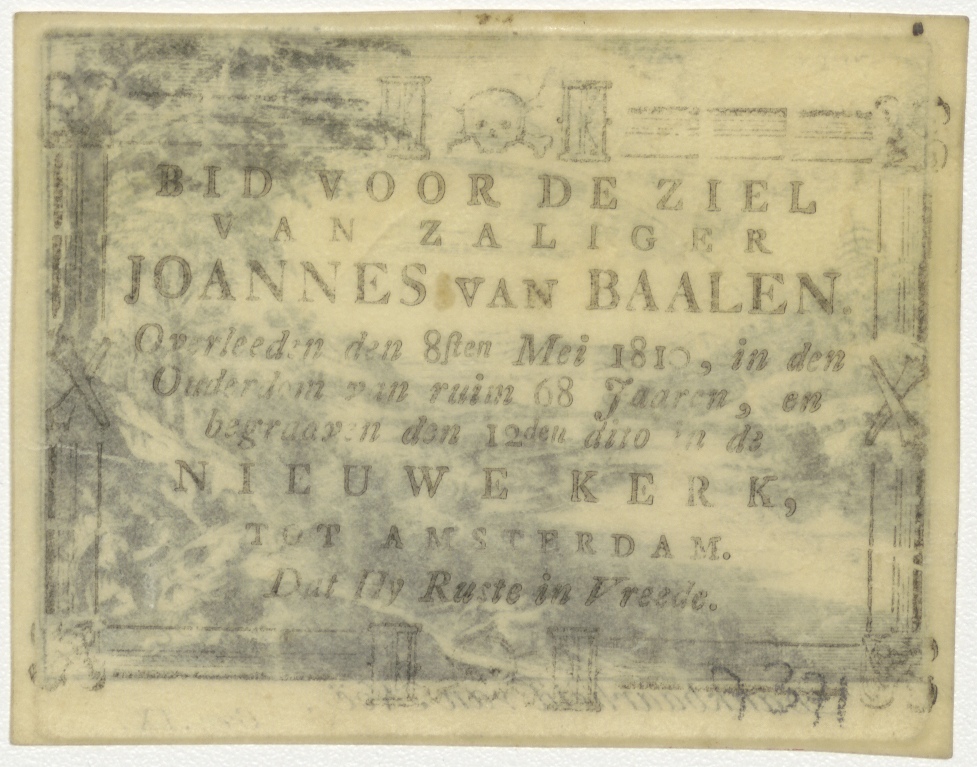 BID VOOR DE ZIEL
VAN ZALIGER
JOANNES VAN BAALEN.
Overleeden den 8sten Mei 1810, in den
Ouderdom van ruim 68 Jaaren, en
begraaven den 12den dito in de
NIEUWE KERK,
TOT AMSTERDAM.
Dat Hy Ruste in Vreede.